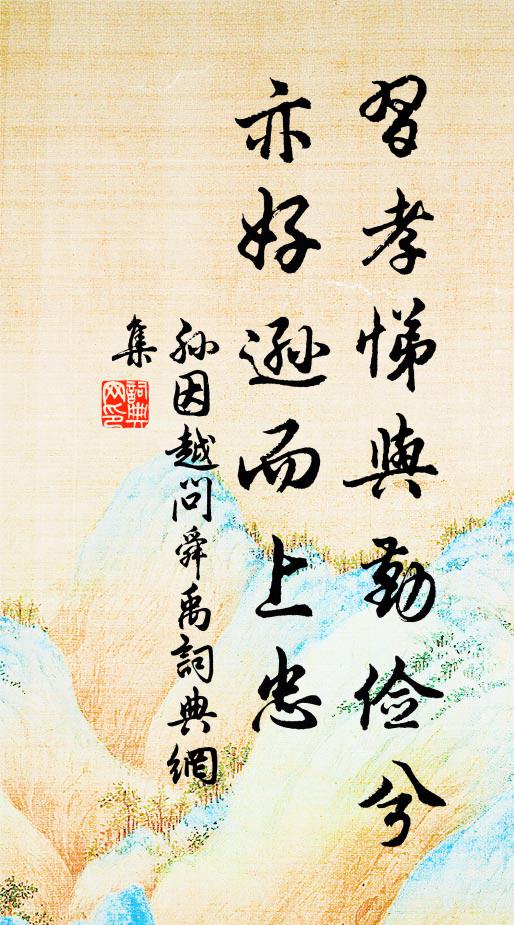 習孝悌與勤儉兮
亦好遜而上忠
孫因越問舜禹詞典網
集
詞典
网印